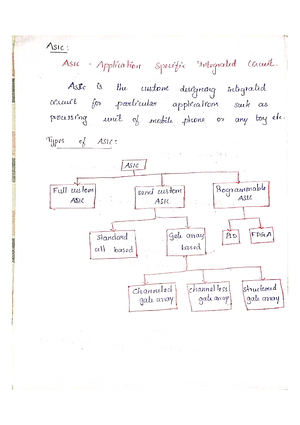 ASIC:
ASIC - Application Specific Integrated Circuit.
ASIC is the custom designing integrated
circuit for particular applications such as
processing unit of mobile phone or any toy etc.
Types of ASIC:
ASIC
Full custom
ASIC
Semi custom
ASIC
Programmable
ASIC
Standard
cell based
Gate array
based
PLD
FPGA
Channeled
gate array
channelless
gate array
structured
gate array